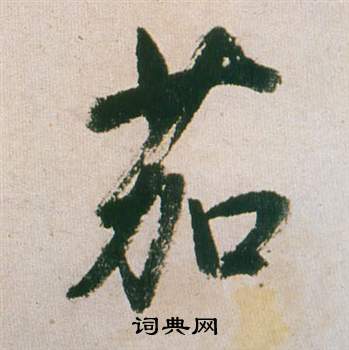 茄
词典网